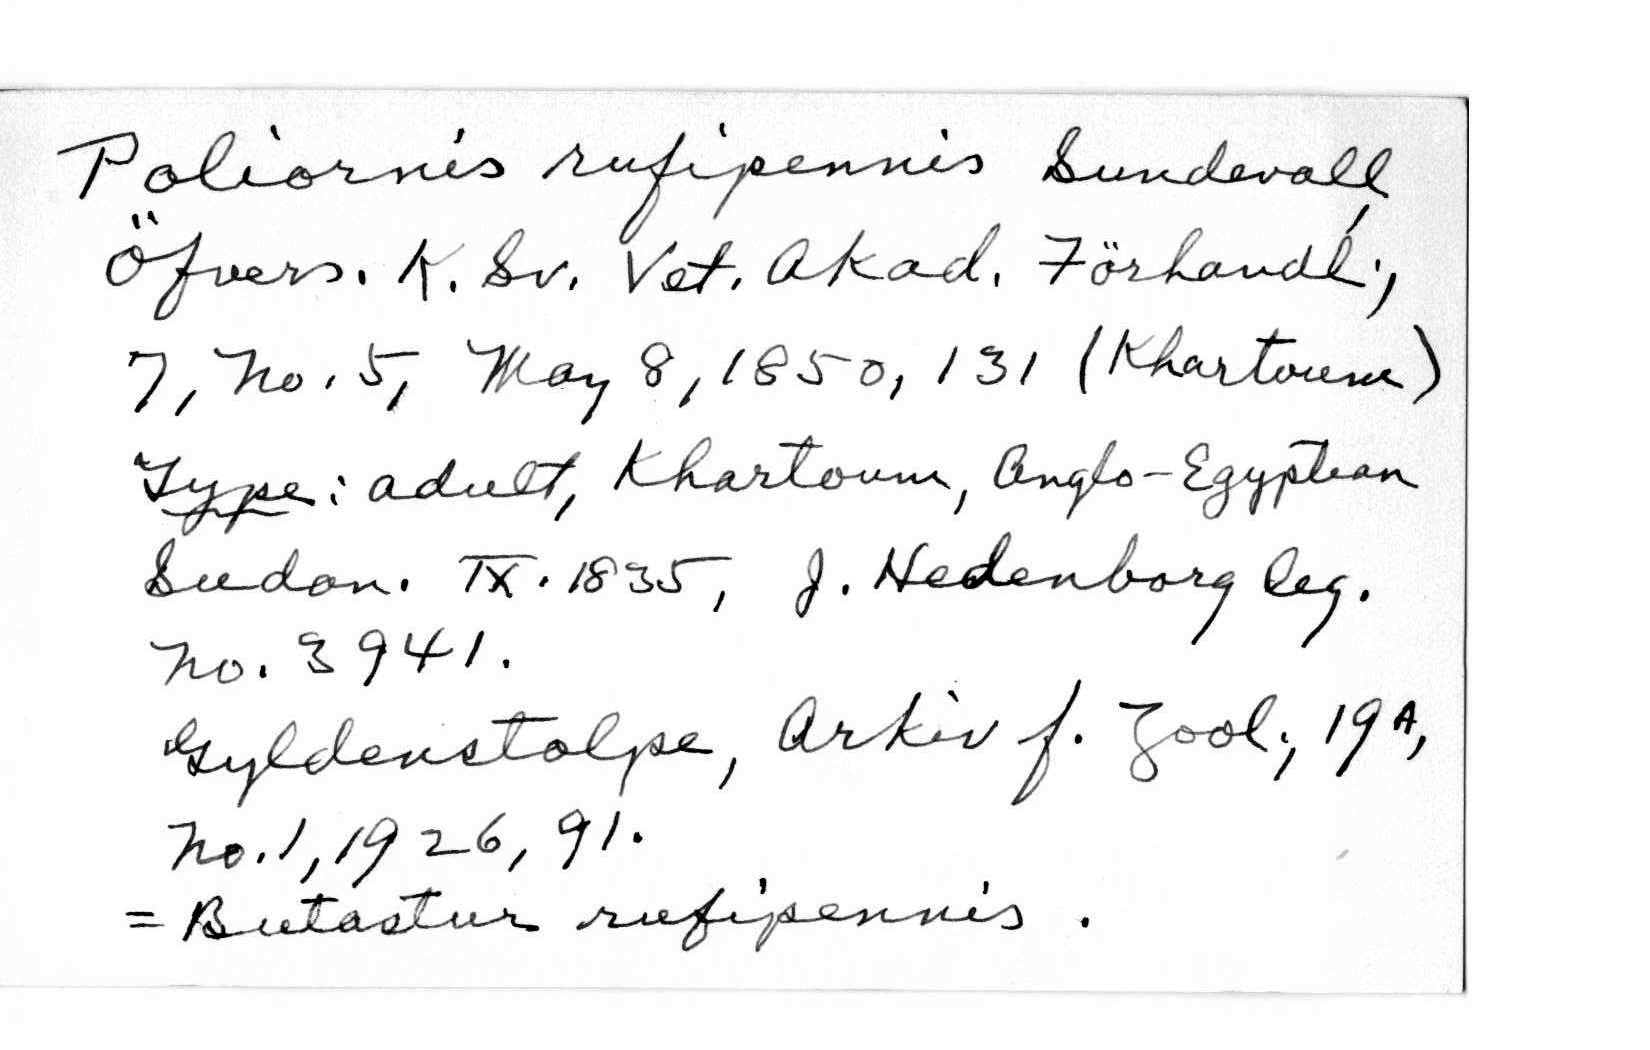 Poliornis rufipennis Sundevall,
Öfvers. K. Sv. Vet. Akad. Förhandl.,
7, No. 5, May 8, 1850, 131 (Khartoum)
Type: adult, Khartoum, Anglo-Egyptian
Sudan. IX. 1835, J. Hedenborg leg.
No. 3941.
Gyldenstolpe, Arkiv f. Zool., 19A,
No. 1, 1926, 91.
= Butastur rufipennis.